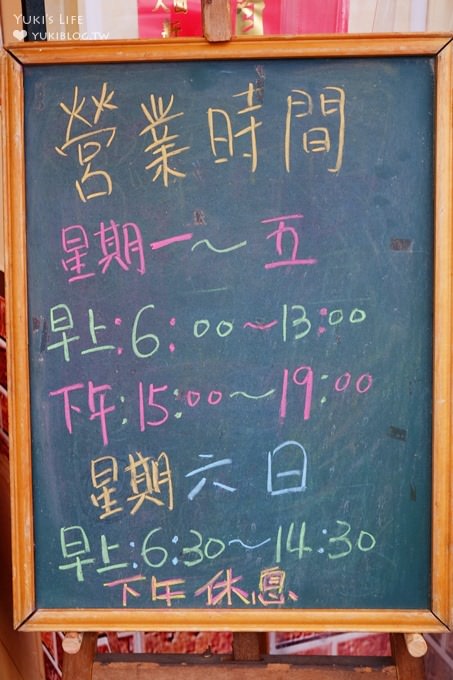 YUKI'S LIFE
♥ YUKIBLOG.TW
營業時間
星期一～五
早上:6:00～13:00
下午:15:00～19:00
星期六日
早上:6:30～14:30
下午休息